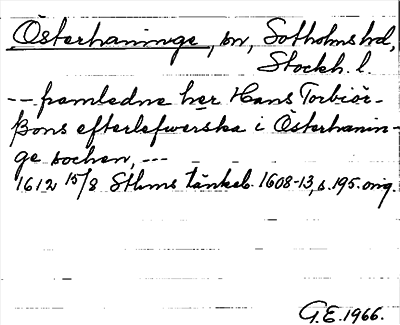 Österhaninge, sn, Sotholms hd,
Stockh. l.
-- framledne her Hans Torbiör-
ßons efterlefwerska i Österhanin-
ge sochen, ---
1612 15/8 Sthms tänkeb. 1608-13, s. 195. orig.
G.E. 1966.